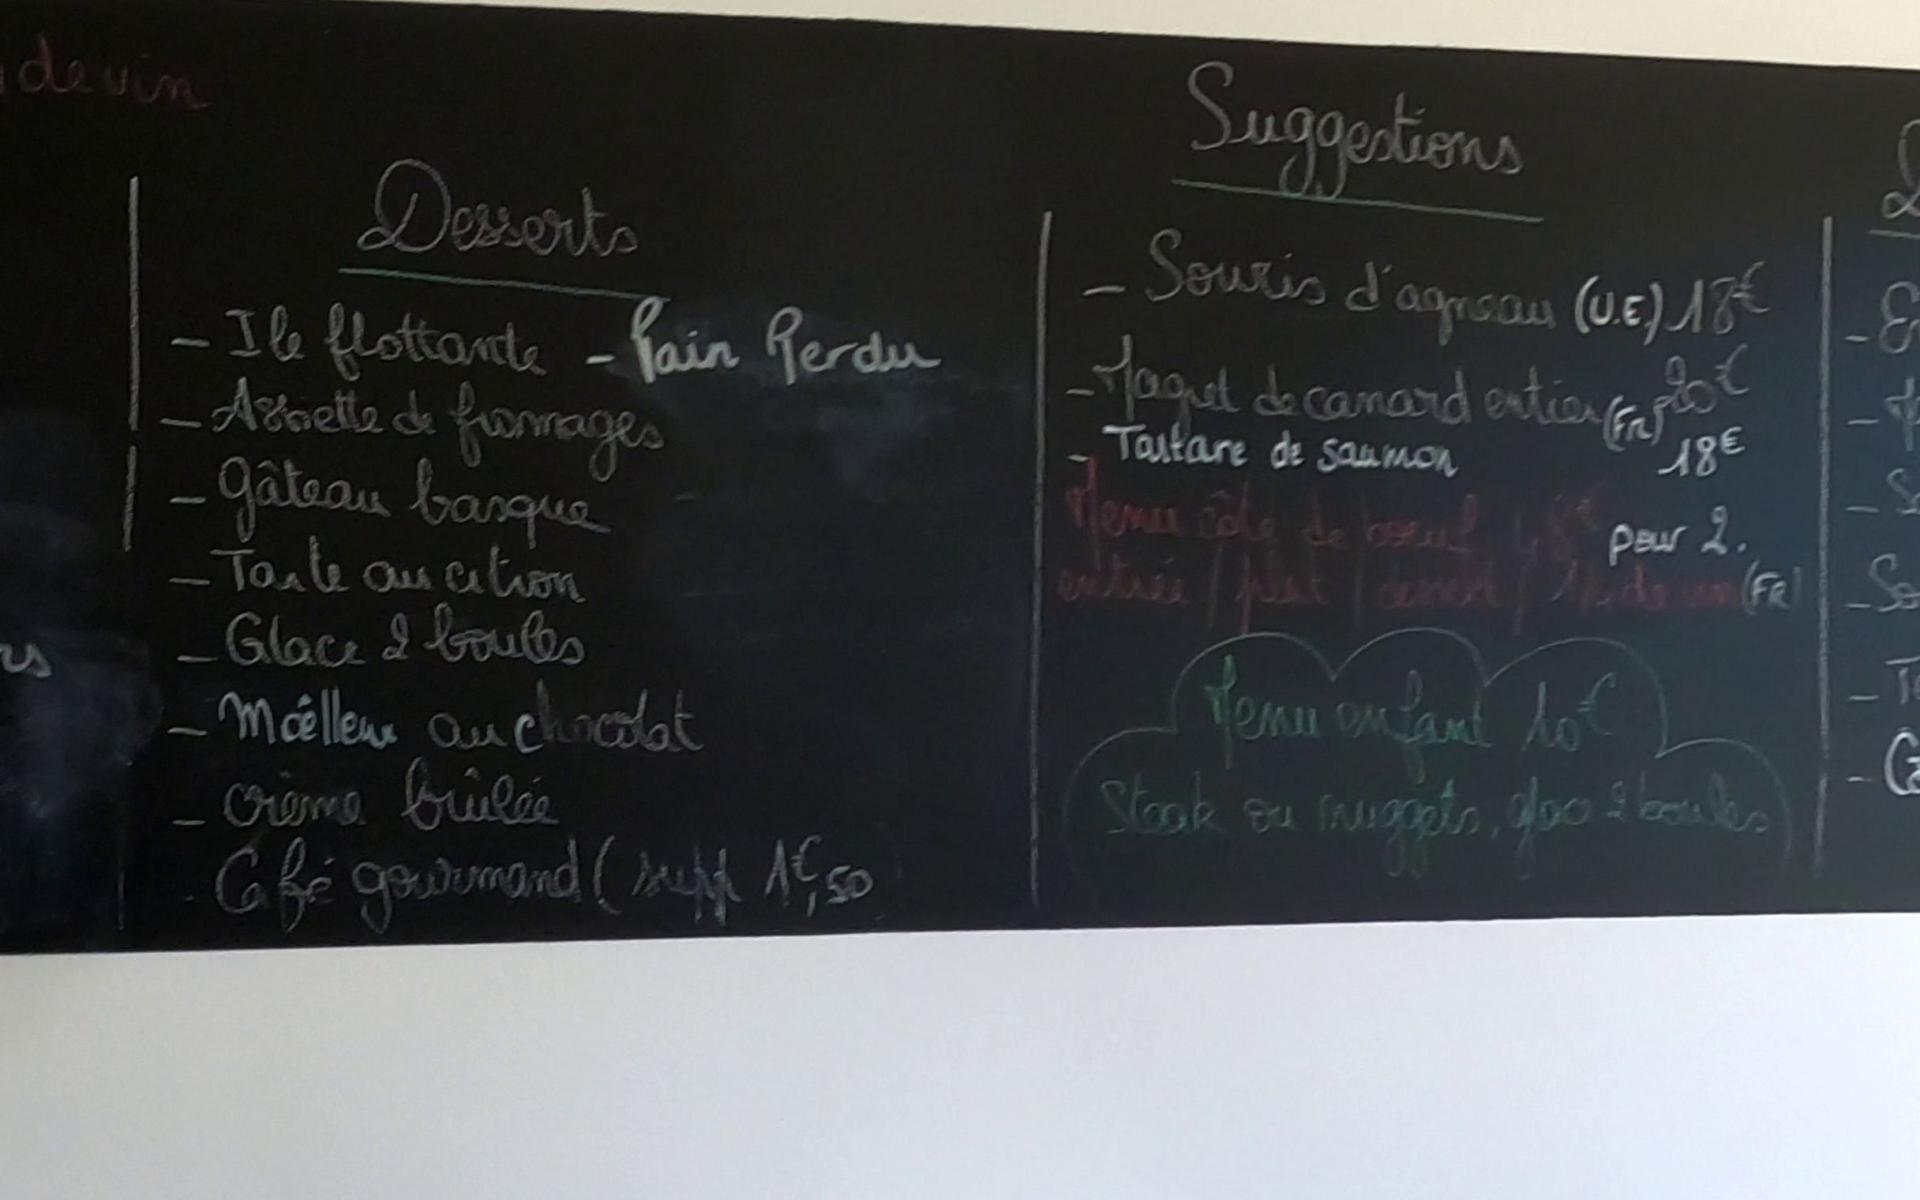 de vin
Desserts
- Ile flottante - Pain Perdu
- Assiette de fromages
- Gâteau basque
- Tarte au citron
- Glace 2 boules
- Moêlleux au chocolat
- crème brûlée
- Café gourmand ( supp 1€,50
Suggestions
- Souris d'agneau (U.E.) 18€
- Magret de canard entier (FR) 20€
- Tartare de saumon 18€
Menu côte de boeuf 48€ pour 2.
entrée / plat / dessert / de vin (FR)
Menu enfant 10€
Steak ou nuggets, glace 2 boules